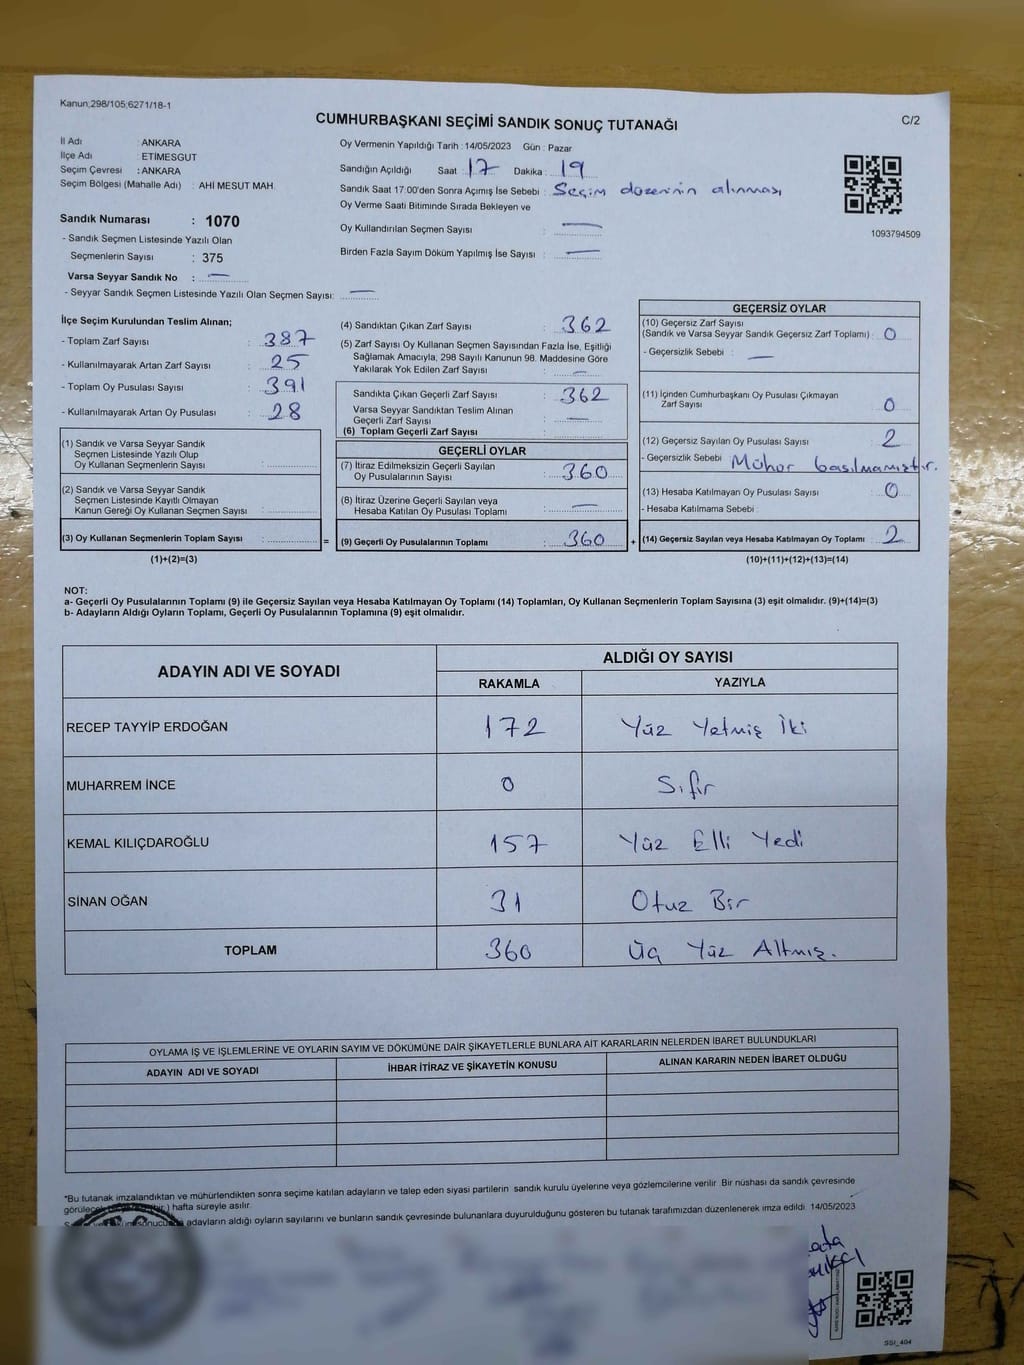 Kanun;298/105;6271/18-1
C/2
CUMHURBAŞKANI SEÇİMİ SANDIK SONUÇ TUTANAĞI
İl Adı : ANKARA
İlçe Adı : ETİMESGUT
Seçim Çevresi : ANKARA
Seçim Bölgesi (Mahalle Adı) : AHİ MESUT MAH.
Sandık Numarası : 1070
- Sandık Seçmen Listesinde Yazılı Olan
Seçmenlerin Sayısı : 375
Varsa Seyyar Sandık No : —
- Seyyar Sandık Seçmen Listesinde Yazılı Olan Seçmen Sayısı: —
Oy Vermenin Yapıldığı Tarih : 14/05/2023 Gün : Pazar
Sandığın Açıldığı Saat : 17 Dakika : 19
Sandık Saat 17:00'den Sonra Açımış İse Sebebi : Seçim düzeninin alınması
Oy Verme Saati Bitiminde Sırada Bekleyen ve
Oy Kullandırılan Seçmen Sayısı : —
Birden Fazla Sayım Döküm Yapılmış İse Sayısı : —
1093794509
İlçe Seçim Kurulundan Teslim Alınan;
- Toplam Zarf Sayısı : 387
- Kullanılmayarak Artan Zarf Sayısı : 25
- Toplam Oy Pusulası Sayısı : 391
- Kullanılmayarak Artan Oy Pusulası : 28
(1) Sandık ve Varsa Seyyar Sandık
Seçmen Listesinde Yazılı Olup
Oy Kullanan Seçmenlerin Sayısı :
(2) Sandık ve Varsa Seyyar Sandık
Seçmen Listesinde Kayıtlı Olmayan
Kanun Gereği Oy Kullanan Seçmen Sayısı :
(3) Oy Kullanan Seçmenlerin Toplam Sayısı :
(1)+(2)=(3)
(4) Sandıktan Çıkan Zarf Sayısı : 362
(5) Zarf Sayısı Oy Kullanan Seçmen Sayısından Fazla İse, Eşitliği
Sağlamak Amacıyla, 298 Sayılı Kanunun 98. Maddesine Göre
Yakılarak Yok Edilen Zarf Sayısı : —
Sandıkta Çıkan Geçerli Zarf Sayısı : 362
Varsa Seyyar Sandıktan Teslim Alınan
Geçerli Zarf Sayısı : —
(6) Toplam Geçerli Zarf Sayısı :
GEÇERLİ OYLAR
(7) İtiraz Edilmeksizin Geçerli Sayılan
Oy Pusulalarının Sayısı : 360
(8) İtiraz Üzerine Geçerli Sayılan veya
Hesaba Katılan Oy Pusulası Toplamı : —
= (9) Geçerli Oy Pusulalarının Toplamı : 360 +
GEÇERSİZ OYLAR
(10) Geçersiz Zarf Sayısı
(Sandık ve Varsa Seyyar Sandık Geçersiz Zarf Toplamı) : 0
- Geçersizlik Sebebi : —
(11) İçinden Cumhurbaşkanı Oy Pusulası Çıkmayan
Zarf Sayısı : 0
(12) Geçersiz Sayılan Oy Pusulası Sayısı : 2
- Geçersizlik Sebebi : Mühür basılmamıştır.
(13) Hesaba Katılmayan Oy Pusulası Sayısı : 0
- Hesaba Katılmama Sebebi :
(14) Geçersiz Sayılan veya Hesaba Katılmayan Oy Toplamı : 2
(10)+(11)+(12)+(13)=(14)
NOT:
a- Geçerli Oy Pusulalarının Toplamı (9) ile Geçersiz Sayılan veya Hesaba Katılmayan Oy Toplamı (14) Toplamları, Oy Kullanan Seçmenlerin Toplam Sayısına (3) eşit olmalıdır. (9)+(14)=(3)
b- Adayların Aldığı Oyların Toplamı, Geçerli Oy Pusulalarının Toplamına (9) eşit olmalıdır.
ADAYIN ADI VE SOYADI
ALDIĞI OY SAYISI
RAKAMLA YAZIYLA
RECEP TAYYİP ERDOĞAN 172 Yüz Yetmiş İki
MUHARREM İNCE 0 Sıfır
KEMAL KILIÇDAROĞLU 157 Yüz Elli Yedi
SİNAN OĞAN 31 Otuz Bir
TOPLAM 360 Üç Yüz Altmış.
OYLAMA İŞ VE İŞLEMLERİNE VE OYLARIN SAYIM VE DÖKÜMÜNE DAİR ŞİKAYETLERLE BUNLARA AİT KARARLARIN NELERDEN İBARET BULUNDUKLARI
ADAYIN ADI VE SOYADI İHBAR İTİRAZ VE ŞİKAYETİN KONUSU ALINAN KARARIN NEDEN İBARET OLDUĞU
*Bu tutanak imzalandıktan ve mühürlendikten sonra seçime katılan adayların ve talep eden siyasi partilerin sandık kurulu üyelerine veya gözlemcilerine verilir. Bir nüshası da sandık çevresinde
görülecek bir yere (bir ) hafta süreyle asılır.
adayların aldığı oyların sayılarını ve bunların sandık çevresinde bulunanlara duyurulduğunu gösteren bu tutanak tarafımızdan düzenlenerek imza edildi. 14/05/2023
SSI_404